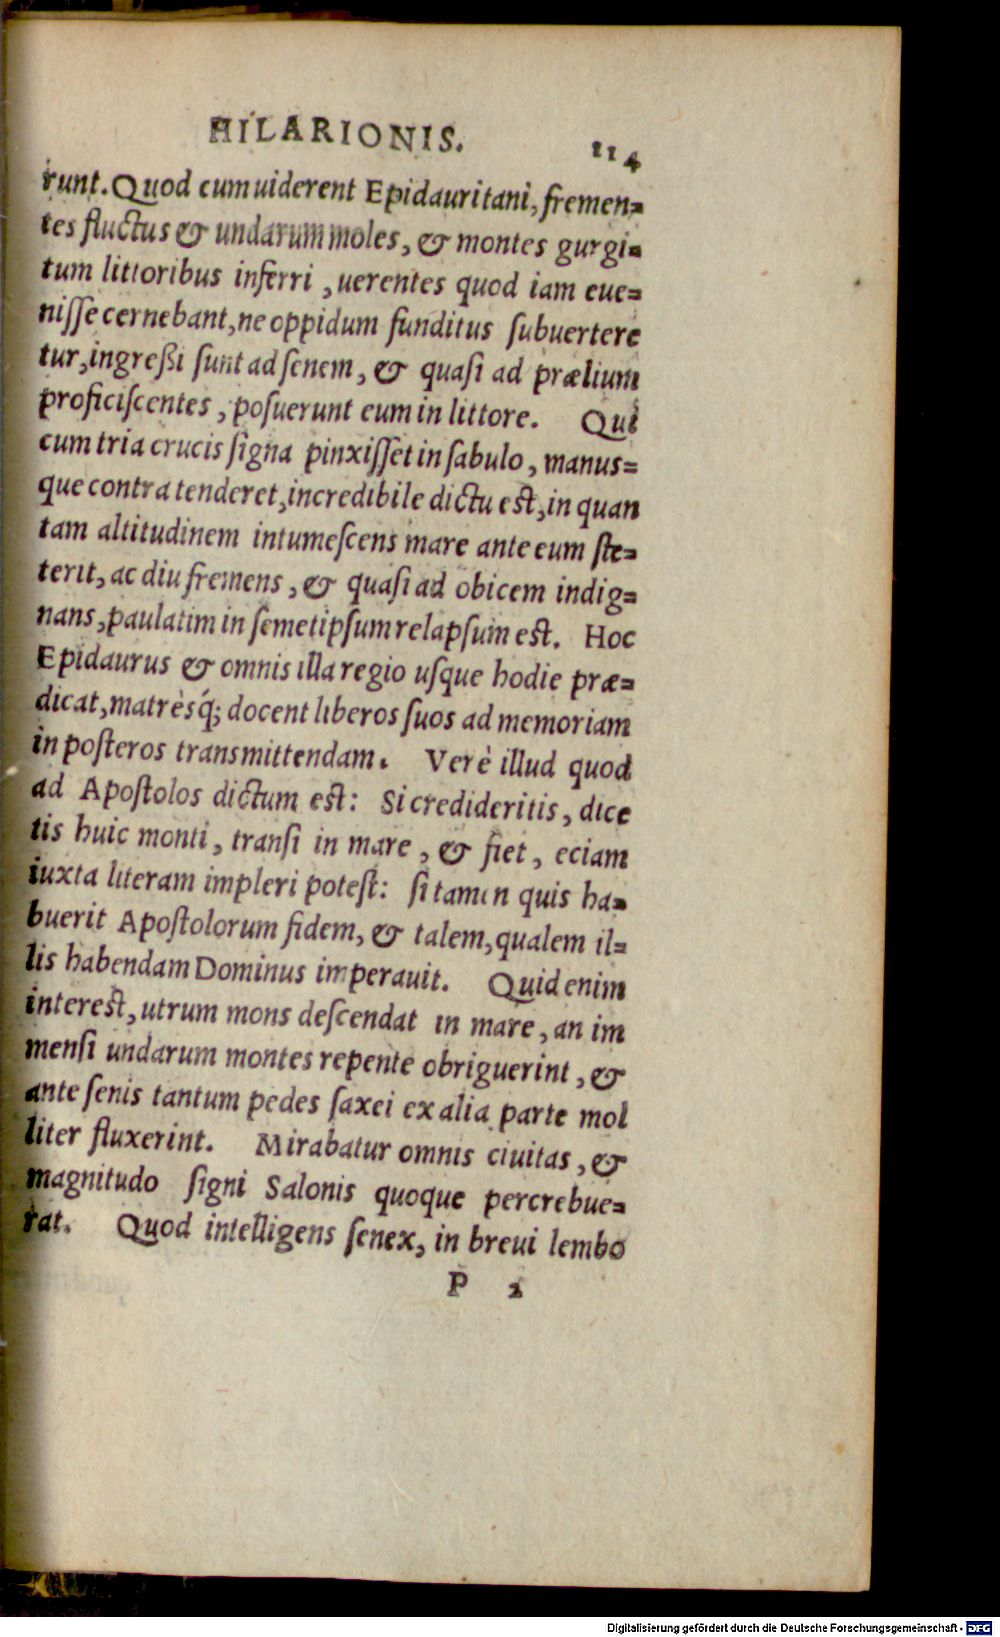 HILARIONIS. 114
runt. Quod cum uiderent Epidauritani, fremen=
tes fluctus & undarum moles, & montes gurgi=
tum littoribus inferri, uerentes quod iam eue=
nisse cernebant, ne oppidum funditus subuertere
tur, ingreßi sunt ad senem, & quasi ad prælium
proficiscentes, posuerunt eum in littore. Qui
cum tria crucis signa pinxisset in sabulo, manus=
que contra tenderet, incredibile dictu est, in quan
tam altitudinem intumescens mare ante eum ste=
terit, ac diu fremens, & quasi ad obicem indig=
nans, paulatim in semetipsum relapsum est. Hoc
Epidaurus & omnis illa regio usque hodie præ=
dicat, matrèsq́; docent liberos suos ad memoriam
in posteros transmittendam. Verè illud quod
ad Apostolos dictum est: Si credideritis, dice
tis huic monti, transi in mare, & fiet, eciam
iuxta literam impleri potest: si tamen quis ha=
buerit Apostolorum fidem, & talem, qualem il=
lis habendam Dominus imperauit. Quid enim
interest, utrum mons descendat in mare, an im
mensi undarum montes repente obriguerint, &
ante senis tantum pedes saxei ex alia parte mol
liter fluxerint. Mirabatur omnis ciuitas, &
magnitudo signi Salonis quoque percrebue=
rat. Quod intelligens senex, in breui lembo
P 2
Digitalisierung gefördert durch die Deutsche Forschungsgemeinschaft - DFG